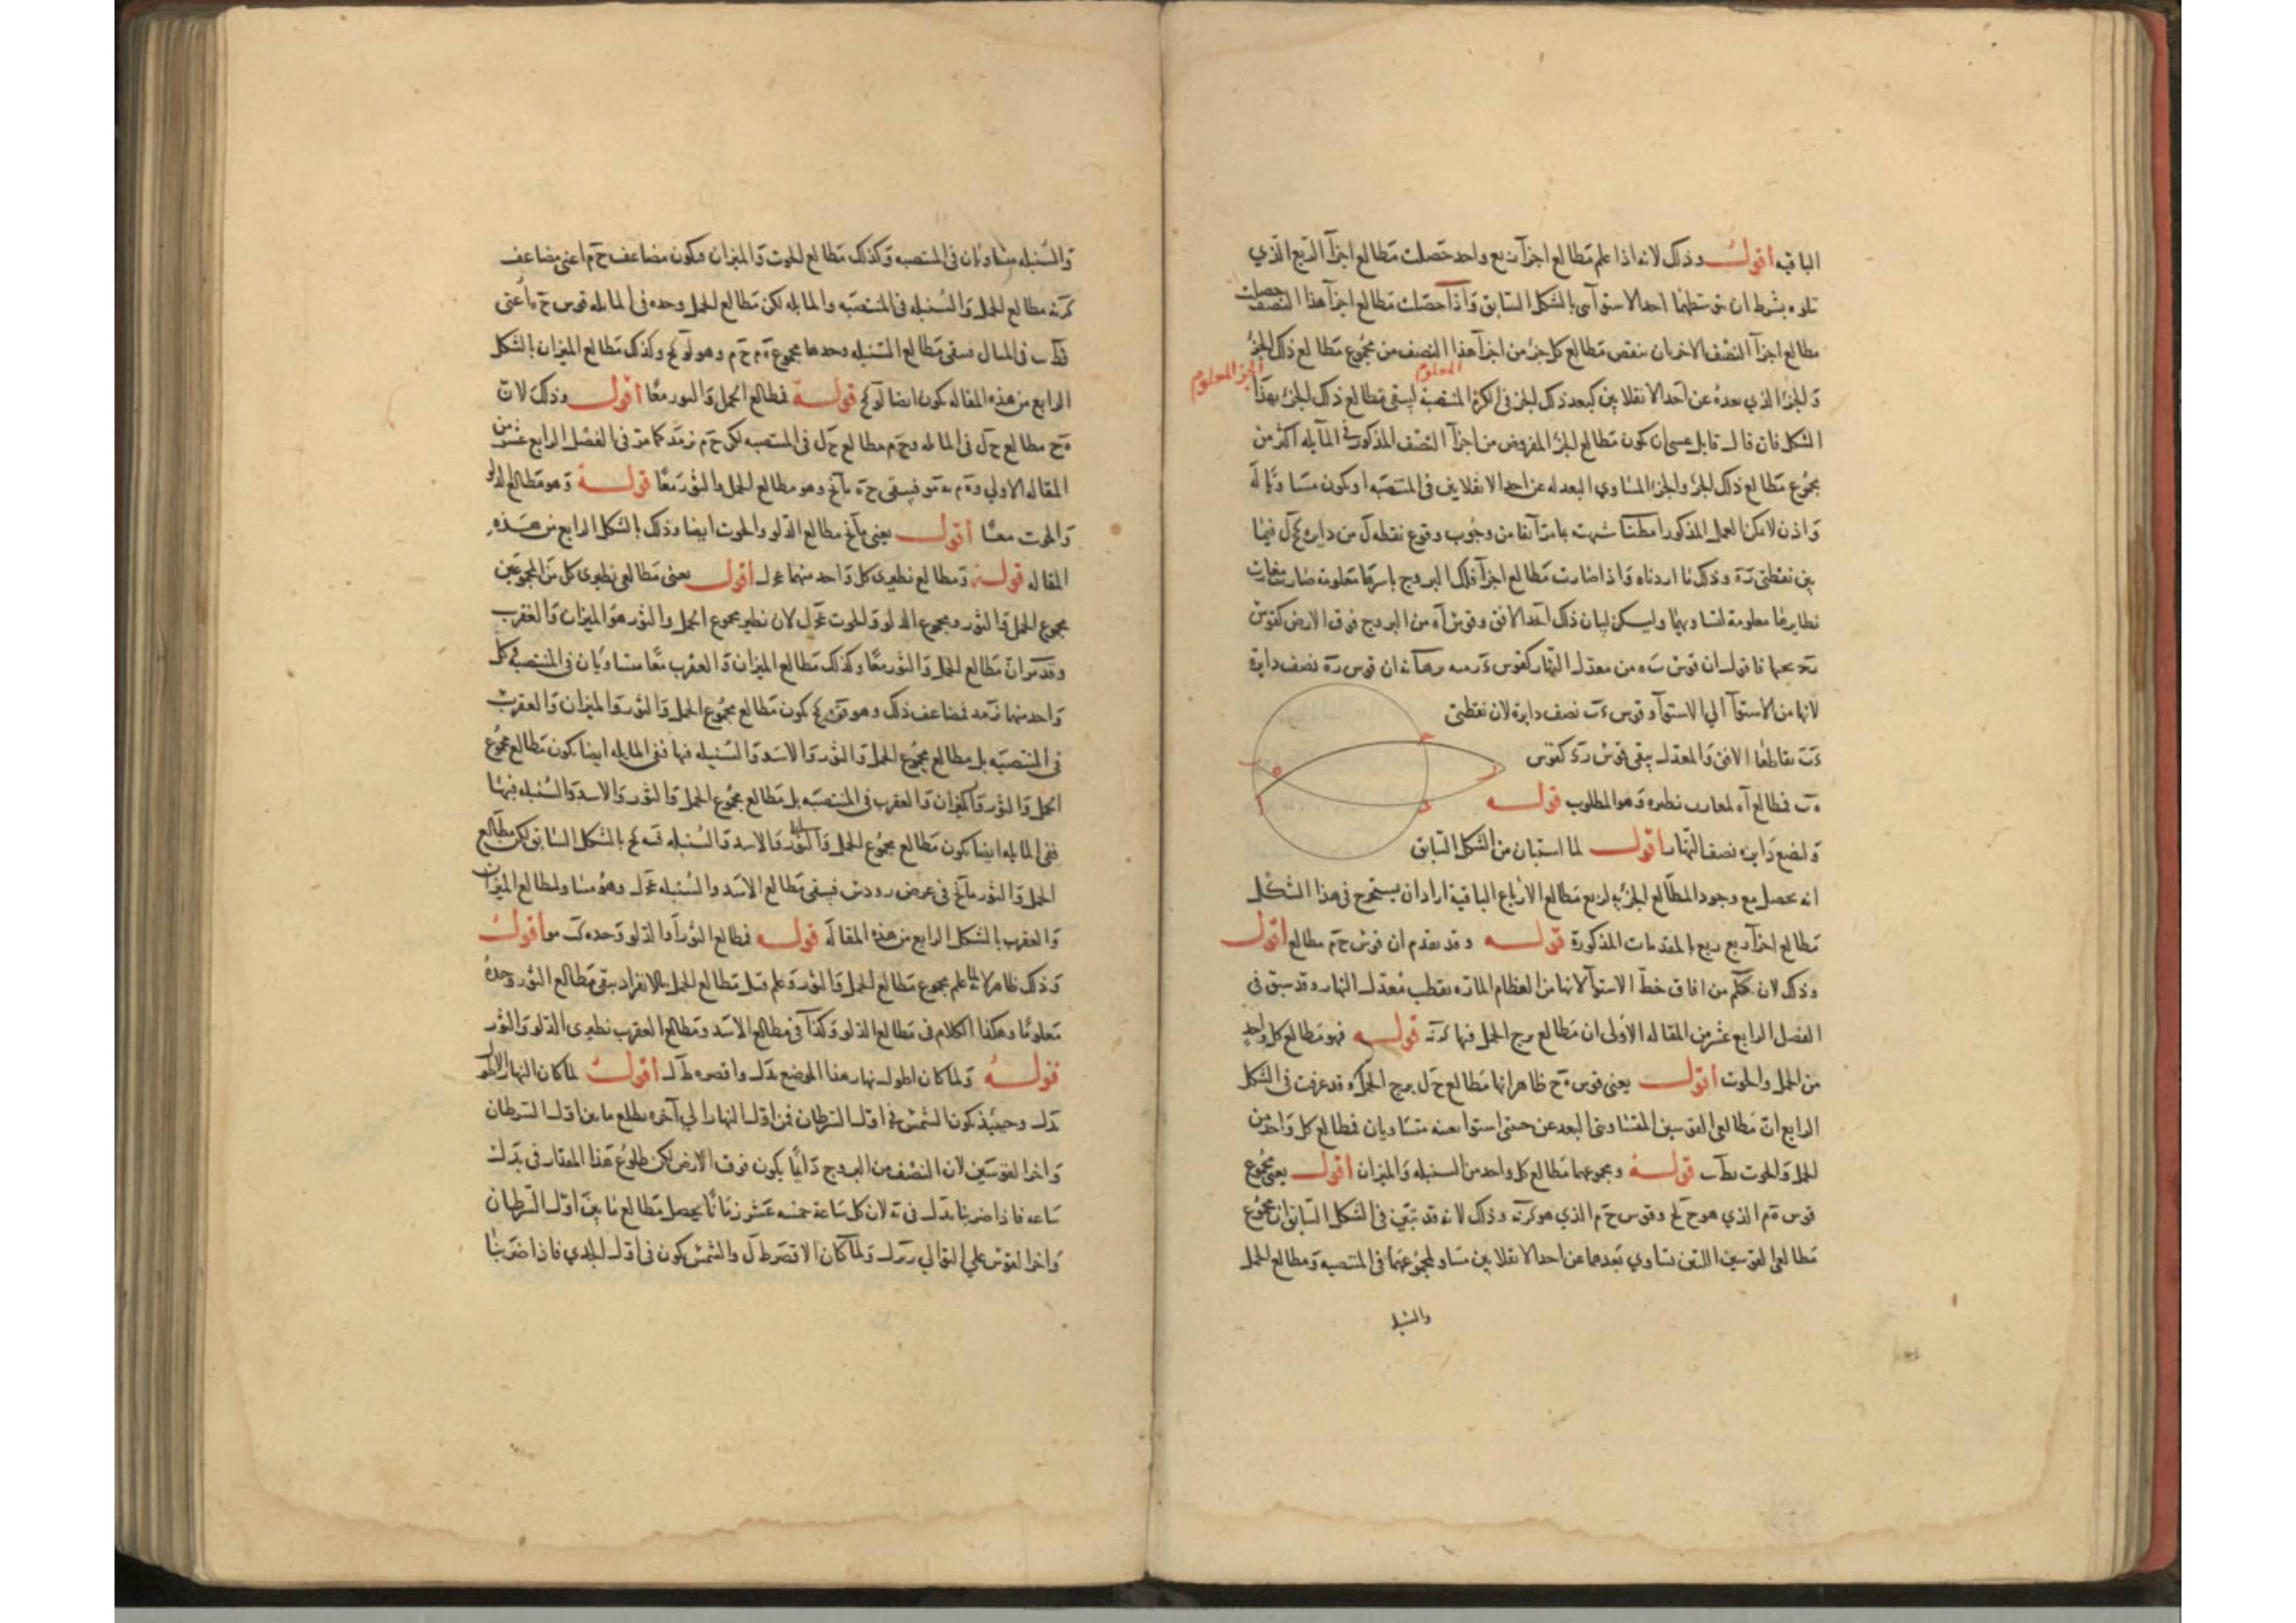 الباقيه أقول وذلك لانه اذا علم مطالع اجزآ ربع واحد حصلت مطالع اجزآ الربع الذي
تلوه بشرط ان يتوسطهما احد الاستوآين بالشكل السابق وَاذا حصلت مطالع اجزآ هذا النصف حصلت
مطالع اجزآ النصف الاخر بان ينقص مطالع كل جزء من اجزآ هذا النصف من مجموع مطالع ذلك الجزء
الجزء المعلوم
المعلوم
وَالجزء الذي بعده عن احد الانقلابين كبعد ذلك الجزء في الكرة المنتصبة ليبقى مطالع ذلك الجزء بهذا
الشكل فان قال قايل عسى ان يكون مطالع الجزء المفروض من اجزآ النصف المذكور في المآيله اكثر من
مجموع مطالع ذلك الجزء والجزء المساوي البعد له عن احد الانقلابين في المنتصبه او يكون مساويًا له
وَاذن لا يمكن العمل المذكور من وجوب وقوع نقطه ل من دايرة فيما
بين نقطتي وذلك ما اردناه وَاذا صارت مطالع اجزآ فلك البروج باسرها معلومه صارت مغارب
نظايرها معلومة لتساويهما وليكن لبيان ذلك احد الافق وقوس آه من البروج فوق الارض كقوس
تحتها فاقول ان قوس من معدل النهار كقوس برهانه ان قوس نصف دايرة
لانها من الاستوآ الي الاستوآ وقوس نصف دايرة لان نقطتي
تقاطعا الافق وَالمعدل يبقى قوس كقوس
فطالع آه لمغارب نظيره وَهو المطلوب قوله
وَلنضع دَايره نصف النهار أقول لما استبان من الشكل السابق
انه يحصل مع وجود المطالع الجزئيه لربع مطالع الارباع الباقية اراد ان يستخرج في هذا الشكل
مطالع اجزآ ربع ربع بالمقدمات المذكورة قوله وقد تقدم ان قوس ح م مطالع أقول
وذلك لان من افاق خط الاستوآ لانها من العظام المارة بقطب معدل النهار وقد سبق في
الفصل الرابع عشر من المقاله الاولى ان مطالع برج الحمل فيها قوله فهو مطالع كل واحد
من الحمل والحوت أقول يعني قوس ه ح ظاهر انها مطالع ح ل برج الحمل وقد عرفت في الشكل
الرابع ان مطالعي القوسين المتساويتي البعد عن نقطتي متساويان فطالع كل وَاحد من
الحمل وَالحوت قوله ومجموعهما مطالع كل واحد من السنبله وَالميزان أقول يعني مجموع
قوس ه م الذي هو وقوس ح م الذي هو وذلك لانه قد تبين في الشكل السابق ان مجموع
مطالعي القوسين اللتين تساوي بعدهما عن احد الانقلابين مساو لمجموعهما في المنتصبه وَمطالع الحمل
والسنبله
وَالسنبله متساويان في المنتصبه وَكذلك مطالع الحوت وَالميزان فيكون مضاعف ح م اعني مضاعف
مطالع الحمل وَالسنبله في المنتصبه والمايله لكن مطالع الحمل وحده في المايله قوس اعني
في المثال فيبقى مطالع السنبله وحدها مجموع ه م ح م وهو وكذلك مطالع الميزان بالشكل
الرابع من هذه المقاله يكون ايضا قوله فمطالع الحمل وَالثور معًا أقول وذلك لان
ه ح مطالع ح ل في المايله وح م مطالع ح ل في المنتصبه لكن ح م كما مر في الفصل الرابع عشر من
المقاله الاولي فيبقى وهو مطالع الحمل والثور معًا قوله وَهو مطالع الدلو
وَالحوت معًا أقول يعني مطالع الدلو والحوت ايضا وذلك بالشكل الرابع من هذه
المقاله قوله وَمطالع نظيري كل وَاحد منهما أقول يعني مطالعي نظيري كل من المجموعين
مجموع الحمل وَالثور ومجموع الدلو وَالحوت لان نظير مجموع الحمل والثور هو الميزان وَالعقرب
وقد مر ان مطالع الحمل وَالثور معًا وكذلك مطالع الميزان وَالعقرب معًا متساويان في المنتصبه كل
وَاحد منهما فمضاعف ذلك وهو يكون مطالع مجموع الحمل وَالثور وَالميزان وَالعقرب
في المنتصبه بل مطالع مجموع الحمل وَالثور وَالاسد وَالسنبله فيها ففي المايله ايضا يكون مطالع مجموع
الحمل وَالثور وَالميزان وَالعقرب في المنتصبه بل مطالع مجموع الحمل وَالثور وَالاسد وَالسنبله فيها
ففي المايله ايضا يكون مطالع مجموع الحمل وَالثور وَالاسد وَالسنبله بالشكل السابق لكن مطالع
الحمل وَالثور في عرض رودس فيبقى مطالع الاسد والسنبله وهو مساو لمطالع الميزان
وَالعقرب بالشكل الرابع من هذه المقاله قوله فمطالع الثور والدلو وَحده أقول
وَذلك ظاهر لانه لما علم مجموع مطالع الحمل وَالثور وَعلم قبل مطالع الحمل بالانفراد يبقى مطالع الثور وحده
معلومًا وهكذا الكلام في مطالع الدلو وَكذا في مطالع الاسد ومطالع العقرب نظيري الدلو وَالثور
قوله وَلما كان اطول نهار هذا الموضع واقصره أقول لما كان النهار الاطول
وحينيذ يكون الشمس في اول السرطان فمن اول النهار الي آخره يطلع ما بين اول السرطان
وَاخر القوسين لان النصف من البروج دَايمًا يكون فوق الارض لكن طلوع هذا المقدار في
ساعه فاذا ضربنا في لان كل ساعة خمسه عشر زمانًا يحصل مطالع ما بين اول السرطان
وَاخر القوس علي التوالي وَلما كان الاقصر والشمس يكون في اول الجدي فاذا ضربنا